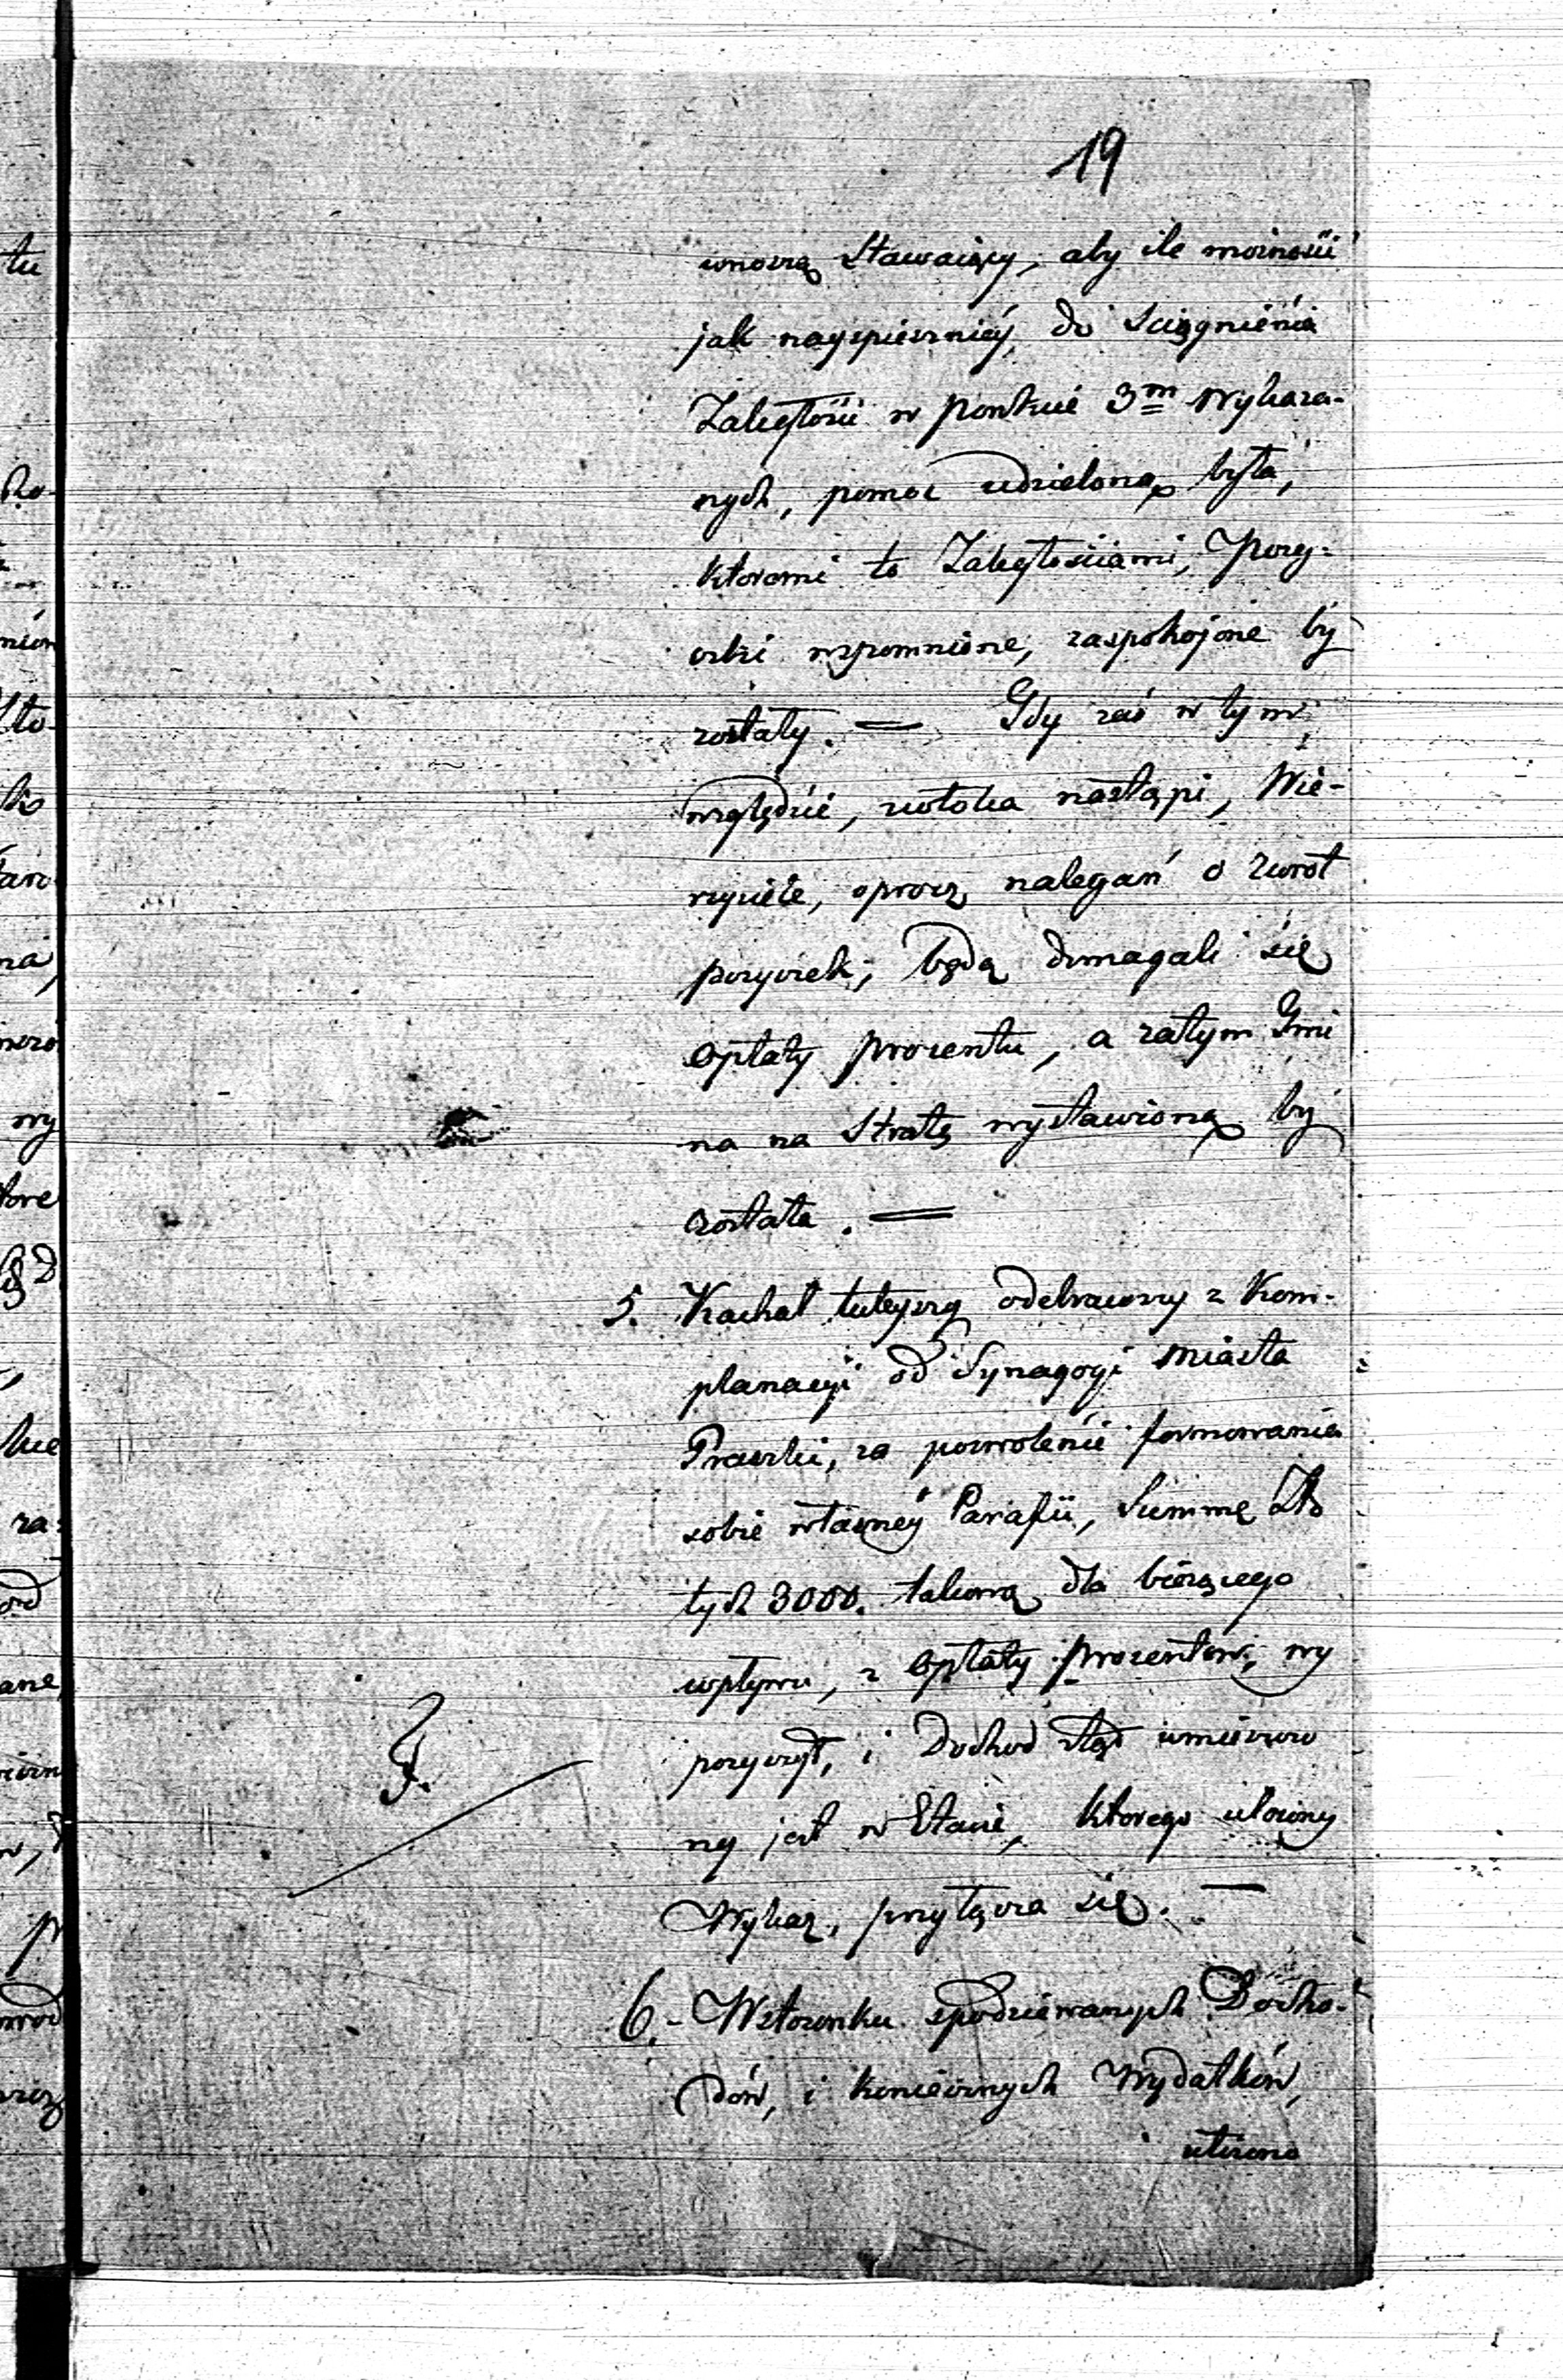 19
wnoszą Stawaiący, aby ile możności
jak nayspieszniey, do Sciągnienia
Zaległości w ponkcie 3m wykaza-
nych, pomoc udzieloną była,
ktoremi to Zaległościami, Pozy-
czki wspomnione, zaspokojone by
zostały. — Gdy zaś w tym
względzie, zwłoka nastąpi, Wie-
rzyciele, oprocz nalegań o zwrot
pozyczek, będą domagali się
opłaty procentu, a zatym Gmi
na na Stratę wystawioną by
została. —
5. Kachał tuteyszy odebrawszy z Kom-
planacyi od Synagogi Miasta
Praszki, za pozwolenie formowania
sobie własney Parafii, Summę Zło
tych 3000. takową dla bieżącego
wpływu, z opłaty procentow, wy
pozyczył, i Dochod ztąd umieszczo
ny jest w Etacie, ktorego ułożony
Wykaz, przyłącza się. —
F.
6. W stosunku spodziewanych Docho-
dów, i koniecznych Wydatków,